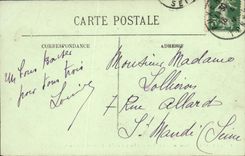 CARTE POSTALE
CORRESPONDANCE
ADRESSE
Un bons baiser
pour tous trois
Louise
Monsieur Madame
7 Rue Allard
St Mandé (Seine